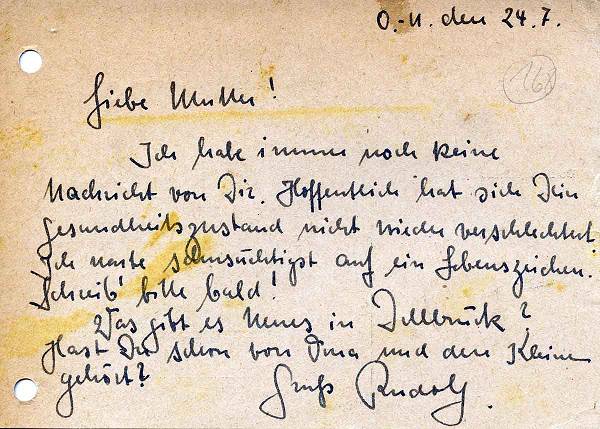 O.-U. den 24.7.
168
Liebe Mutter!
Ich habe immer noch keine
Nachricht von Dir. Hoffentlich hat sich Dein
Gesundheitszustand nicht wieder verschlechtert.
Ich warte sehnsüchtigst auf ein Lebenszeichen.
Schreib' bitte bald!
Was gibt es Neues in Illbruck?
Hast Du schon von Oma und den Kleinen
gehört?
Gruß Rudolf.